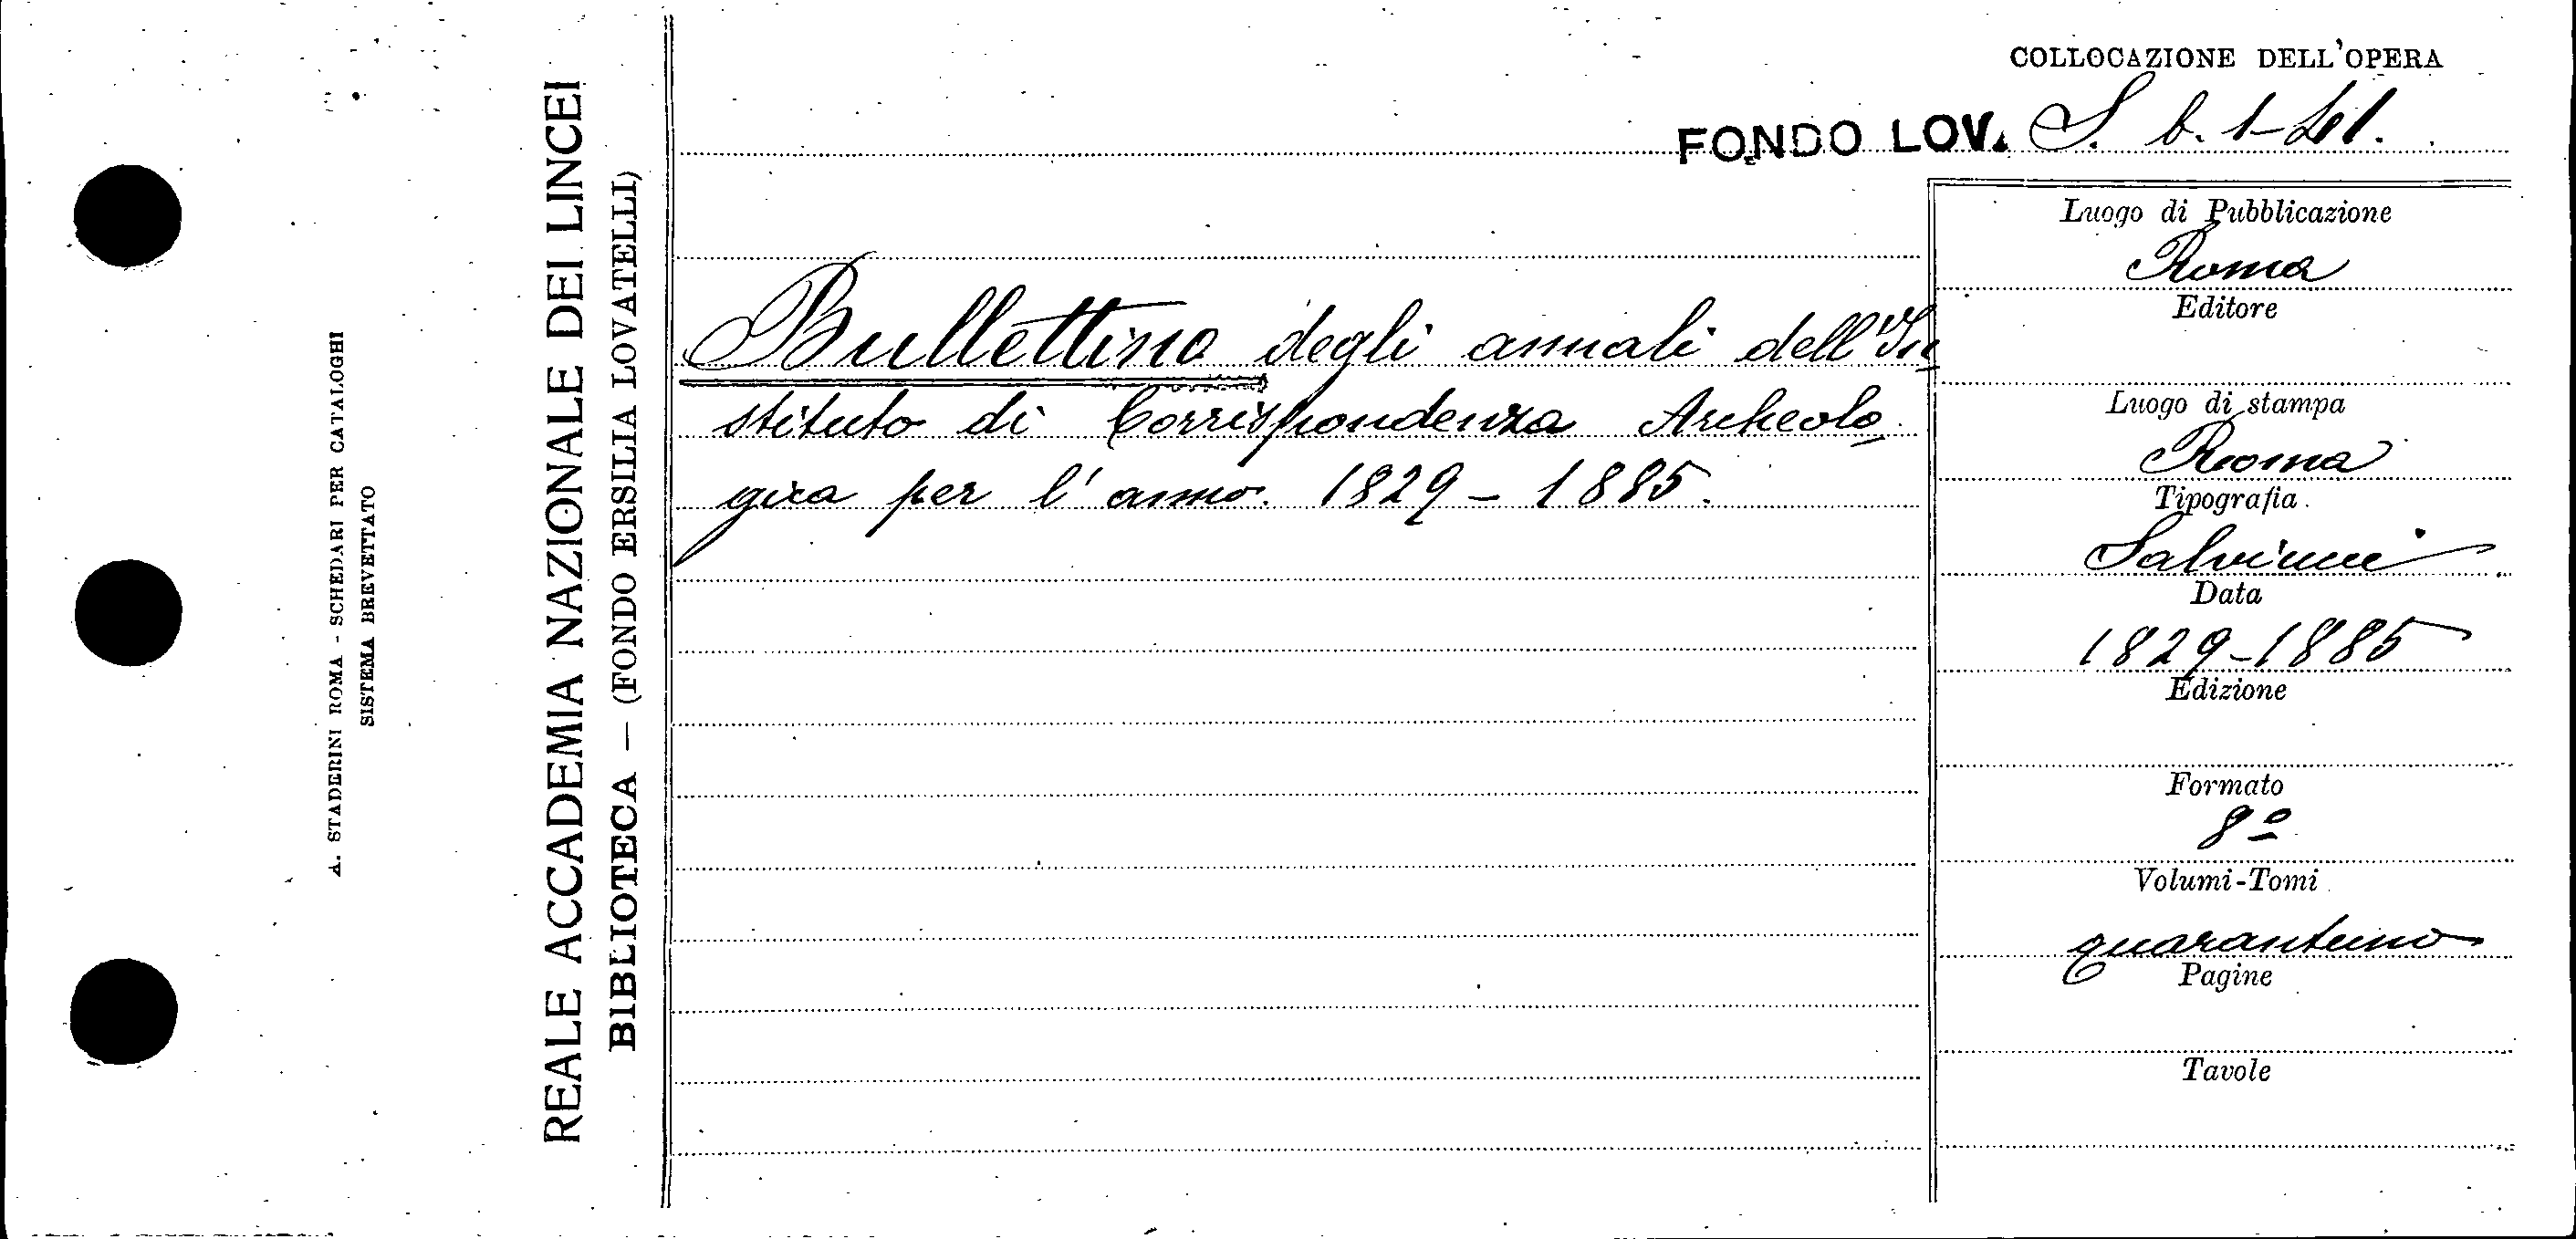 A. STADERINI ROMA - SCHEDARI PER CATALOGHI
SISTEMA BREVETTATO
REALE ACCADEMIA NAZIONALE DEI LINCEI
BIBLIOTECA — (FONDO ERSILIA LOVATELLI)
COLLOCAZIONE DELL'OPERA
FONDO LOV. S. b. 1-41.
Bullettino degli annali dell'In
stituto di Corrispondenza Archeolo
gica per l'anno. 1829 - 1885.
Luogo di Pubblicazione
Roma
Editore
Luogo di stampa
Roma
Tipografia
Salviucci
Data
1829-1885
Edizione
Formato
8º
Volumi-Tomi
quarantuno
Pagine
Tavole